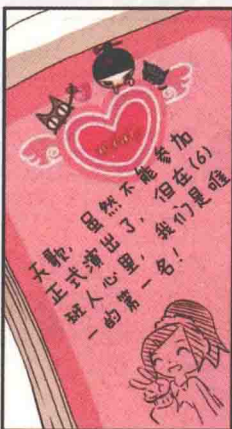 天歌，虽然不能参加
正式演出了，但在(6)
班人心里，我们是唯
一的第一名！